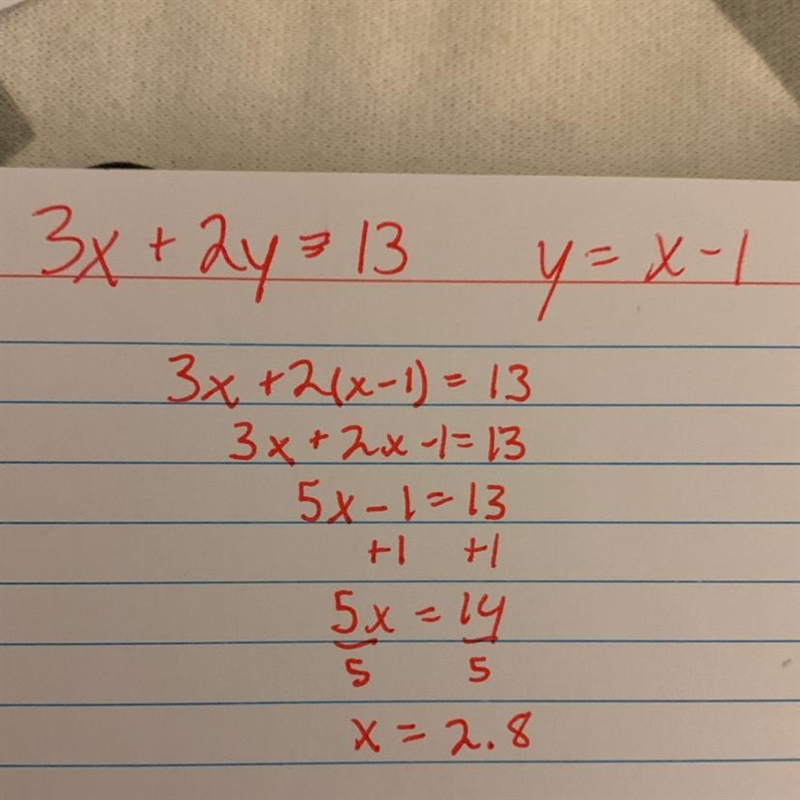 3x + 2y = 13 y = x - 1
3x + 2(x - 1) = 13
3x + 2x - 1 = 13
5x - 1 = 13
+1 +1
5x = 14
5 5
x = 2.8